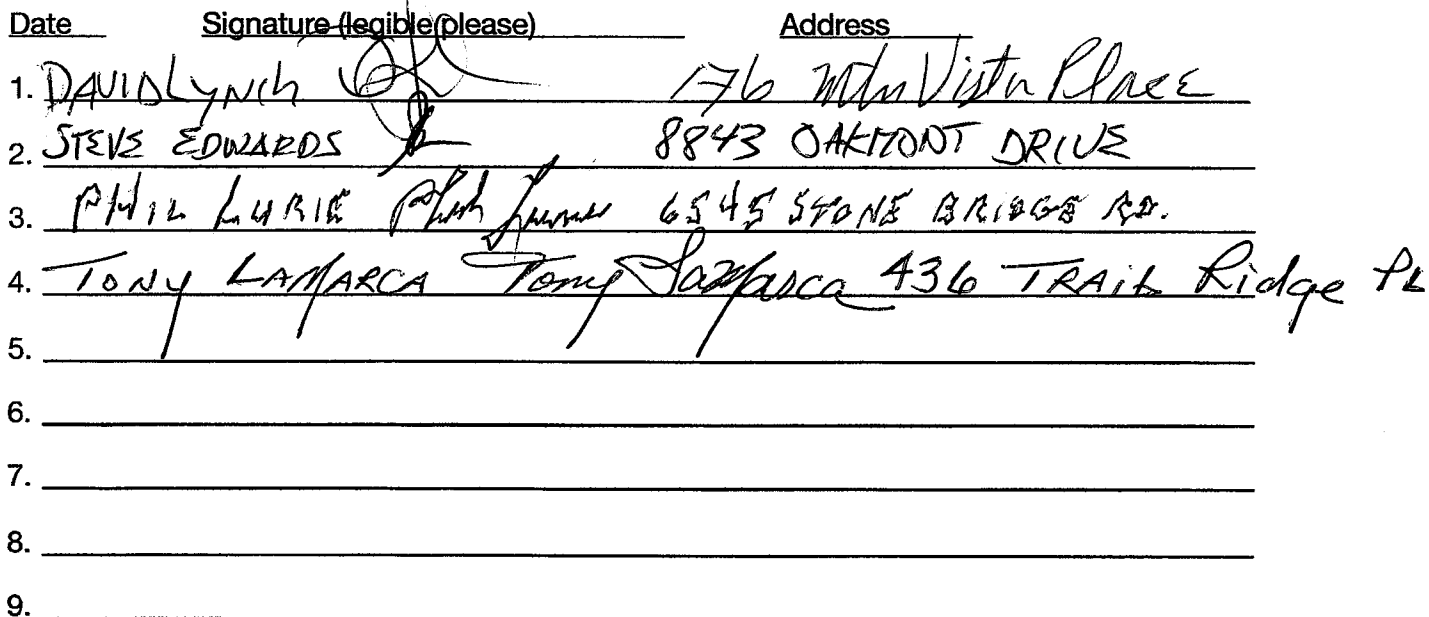 Date Signature (legible please) Address
1. DAVID LYNCH 176 Mtn Vista Place
2. STEVE EDWARDS 8843 OAKMONT DRIVE
3. PHIL LURIE 6545 STONE BRIDGE RD.
4. TONY LAMARCA Tony LaMarca 436 TRAIL Ridge PL
5.
6.
7.
8.
9.